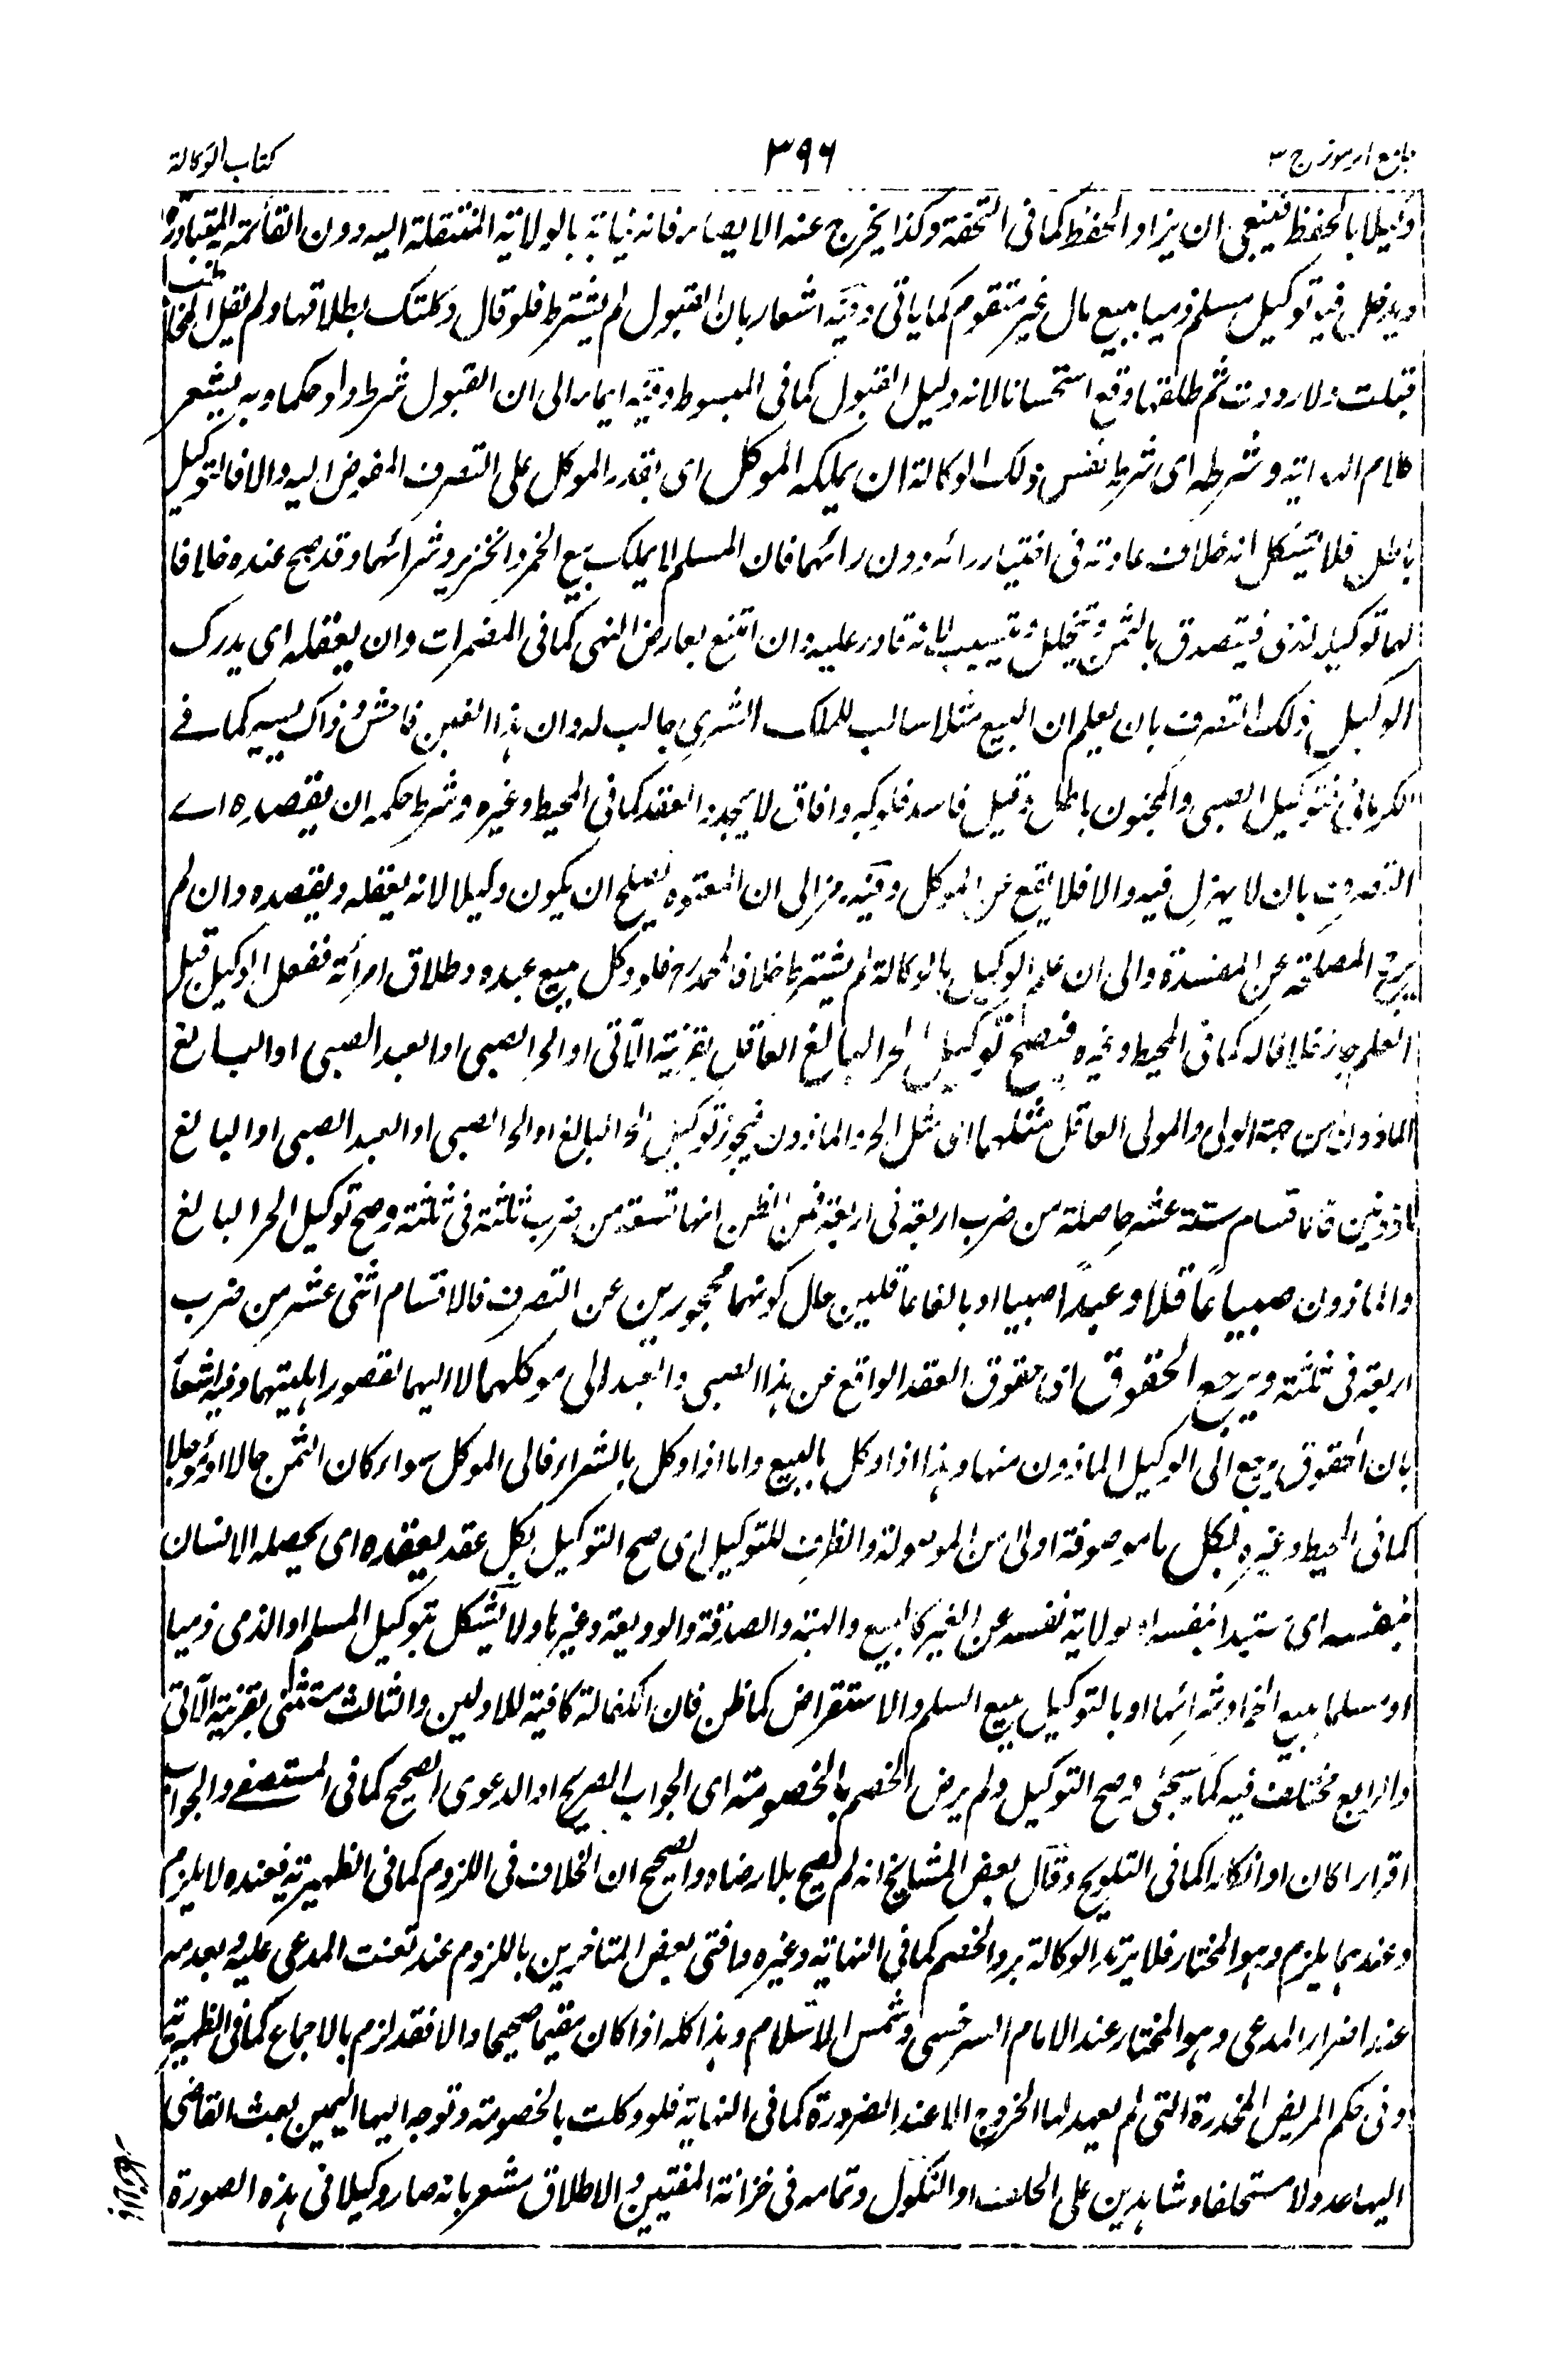 جامع الرموز ج ٣
٣٩٦
كتاب الوكالة
وكيلا بالحفظ فينبغى ان يزاد الحفظ كما فى التحفة وكذا يخرج عنه الايصاء فانه نيابة بالولاية المنتقلة اليه دون القائمة المتبادرة
ويدخل فيه توكيل مسلم ذميا ببيع مال غير متقوم كما ياتى وفيه اشعار بان القبول لم يشترط فلو قال وكلتك بطلاقها ولم يقل المخاطب
قبلت ولا رددت ثم طلقها وقع استحسانا لانه دليل القبول كما فى المبسوط وفيه ايماء الى ان القبول شرط ولو حكما وبه يشعر
كلام الهداية وشرطه اى شرط نفس ذلك الوكالة ان يملكه الموكل اى يقدر الموكل على التصرف المفوض اليه والا فالتوكيل
باطل فلا يشكل انه خلاف عادته فى اختيار رائه دون رائهما فان المسلم لا يملك بيع الخمر والخنزير وشرائهما وقد صح عنده خلافا
لهما توكيله لذمى فيتصدق بالثمن ويخلل ويسيب لانه قادر عليه وان امتنع بعارض النهى كما فى المضمرات وان يعقله اى يدرك
الوكيل ذلك التصرف بان يعلم ان البيع مثلا سالب للملك الشرى جالب له وان هذا الغبن فاحش وذاك يسير كما فے
الكرمانى فتوكيل الصبى والمجنون باطل وقيل فاسد فلو كبر وافاق لا يجدد العقد كما فى المحيط وغيره وشرط حكمه ان يقصده اے
التصرف بان لا يهزل فيه والا فلا يقع عن الموكل وفيه رمز الى ان المعتوه يصلح ان يكون وكيلا لانه يعقله ويقصده وان لم
يرجح المصلحة عن المفسدة والى ان علم الوكيل بالوكالة لم يشترط خلافا لمحمد رح فلو وكل ببيع عبده وطلاق امرأته ففعل الوكيل قبل
العلم جاز خلافا له كما فى المحيط وغيره فيصح توكيل الحر البالغ العاقل بقرينة الآتى او الحر الصبى او العبد الصبى او البالغ
الماذون من جهة الولى والمولى العاقل مثلهما اى مثل الحر والماذون فيجوز توكيل الحر البالغ او الحر الصبى او العبد الصبى او البالغ
ماذونين فالاقسام ستة عشر حاصلة من ضرب اربعة فى اربعة فمن الظن انها تسعة من ضرب ثلثة فى ثلثة وصح توكيل الحر البالغ
والماذون صبيا عاقلا وعبدا صبيا او بالغا عاقلين حال كونهما محجورين عن التصرف فالاقسام اثنى عشر من ضرب
اربعة فى ثلثة ويرجع الحقوق اى حقوق العقد الواقع عن هذا الصبى والعبد الى موكلهما لا اليهما لقصور اهليتهما وفيه اشعار
بان الحقوق يرجع الى الوكيل الماذون منهما وهذا اذا وكل بالبيع واما اذا وكل بالشراء فالى الموكل سواء كان الثمن حالا او مؤجلا
كما فى المحيط وغيره بكل ما موصوفة اولى من الموصولة والظرف للتوكيل اى صح التوكيل بكل عقد يعقده اى يحصله الانسان
بنفسه اى مستبدا بنفسه او بولاية نفسه عن الغير كالبيع والهبة والصدقة والوديعة وغيرها ولا يشكل بتوكيل المسلم او الذمى ذميا
او مسلما ببيع الخمر او شرائها او بالتوكيل ببيع السلم والاستقراض كما ظن فان الكفالة كافية للاولين والثالث مستثنى بقرينة الآتى
والرابع مختلف فيه كما سيجئ وصح التوكيل ولم يرض الخصم بالخصومة اى الجواب الصريح او الدعوى الصحيح كما فى المستصفے والجواب
اقرارا كان او انكارا كما فى التلويح وقال بعض المشايخ انه لم يصح بلا رضاه والصحيح ان الخلاف فى اللزوم كما فى الظهيرية فعنده لا يلزم
وعندهما يلزم وهو المختار فلا يرتد الوكالة برد الخصم كما فى النهاية وغيره وافتى بعض المتاخرين باللزوم عند تعنت المدعى عليه وبعدمه
عند اضرار المدعى وهو المختار عند الامام السرخسى وشمس الاسلام وهذا كله اذا كان مقيما صحيحا والا فقد لزم بالاجماع كما فى الظهيرية
وفى حكم المريض المخدرة التى لم يعهد لها الخروج الا عند الضرورة كما فى النهاية فلو وكلت بالخصومة وتوجه اليها اليمين بعث القاضى
اليها عدولا مستحلفا وشاهدين على الحلف او النكول وتمامه فى خزانة المفتيين والاطلاق مشعر بانه صار وكيلا فى هذه الصورة